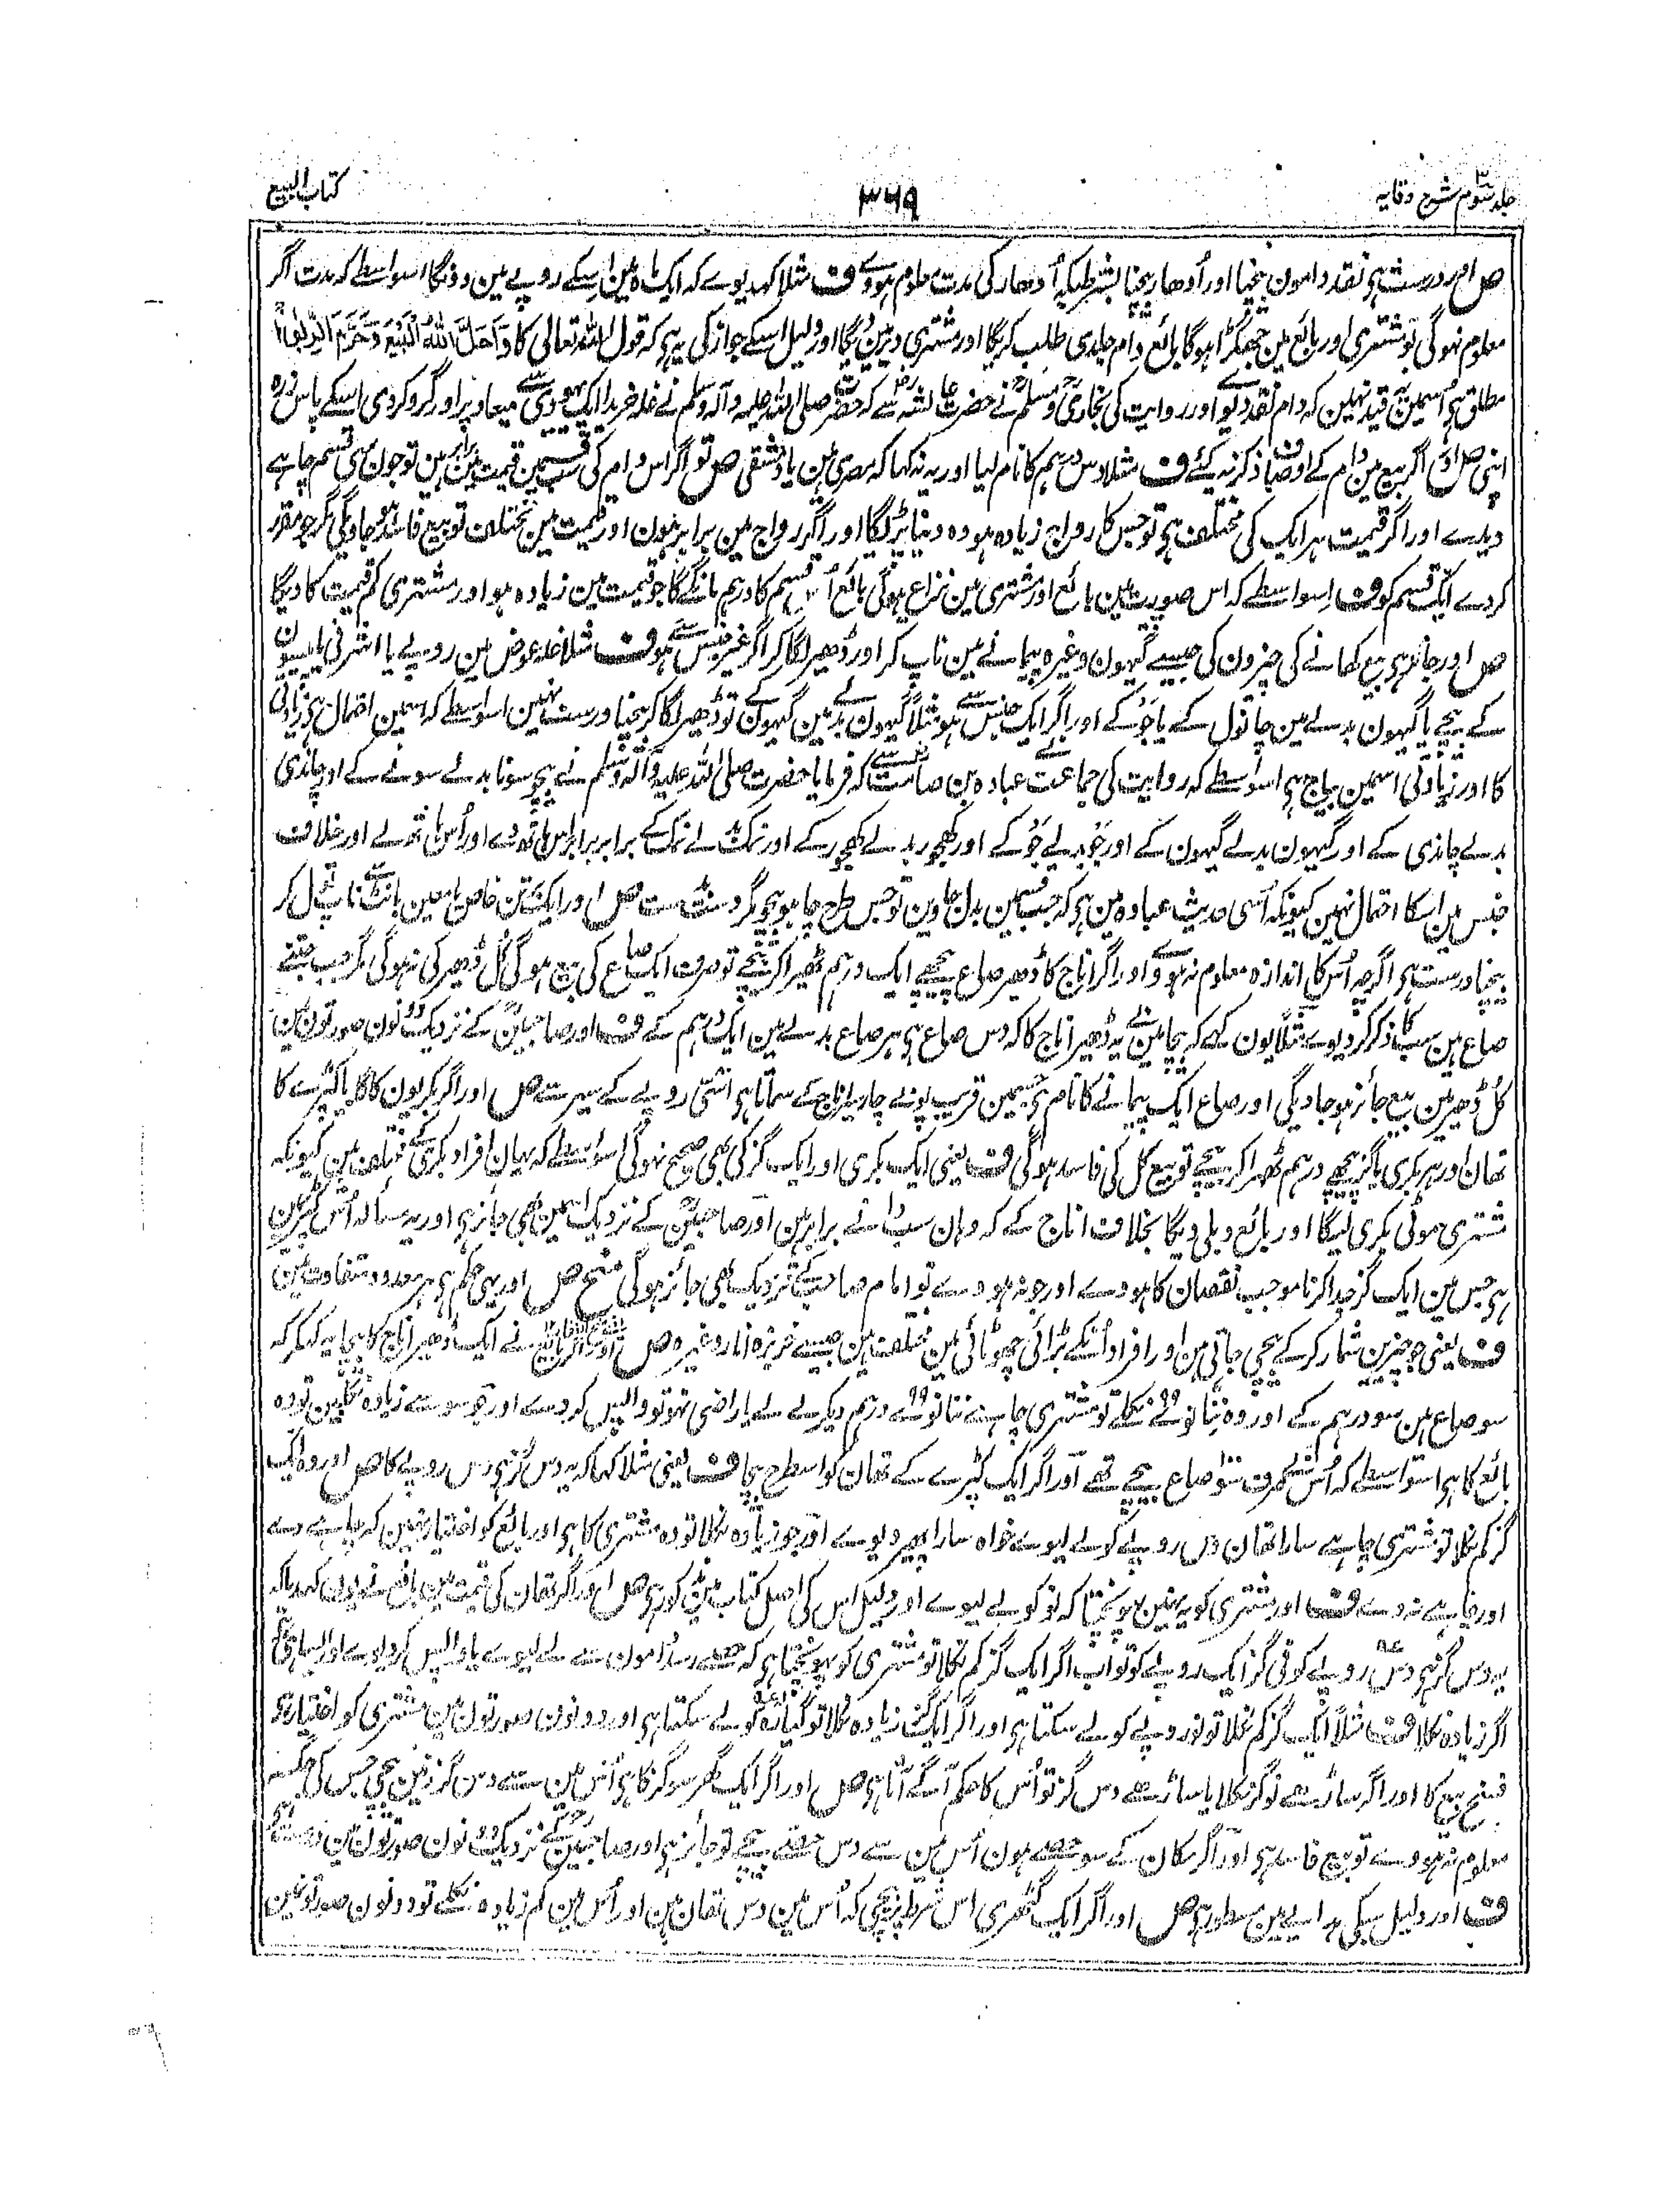 جلد سوم شرح وقایہ
۳۶۹
کتاب البیع
ص اور درست ہی نقد دامون بیچنا اور اُودھار بیچنا بشرطیکہ اُودھار کی مدت معلوم ہووے ف مثلا کہدیوے کہ ایک ماہ مین اسکے روپے مین دونگا اسواسطے کہ مدت اگر
معلوم نہوگی تو مشتری اور بائع مین جھگڑا ہوگا بائع دام جلدی طلب کریگا اور مشتری دیر مین دیگا اور دلیل اسکے جواز کی یہ ہی کہ قول اللہ تعالی کا وَاَحَلَّ اللّٰهُ الْبَيْعَ وَحَرَّمَ الرِّبٰوا
مطلق ہی اُسمین یہ قید نہین کہ دام نقد دیوے اور روایت کی بخاری و مسلم نے حضرت عائشہ سے کہ حضرت صلی اللہ علیہ وآلہ وسلم نے غلہ خریدا ایک یہودی سے میعاد پر اور گرو کردی اسکے پاس زرہ
اپنی ص اور اگر بیع مین دام کے اوصاف ذکر نہ کیے ف مثلا دس درہم کا نام لیا اور یہ نہ کہا کہ مصری ہین یا دمشقی ص تو اگر اس دام کی سب قسمین قیمت مین برابر ہین تو جون سی قسم چاہے
دیدے اور اگر قیمت ہر ایک کی مختلف ہی تو جس کا رواج زیادہ ہو وہ دینا پڑیگا اور اگر رواج مین برابر ہون اور قیمت مین مختلف تو بیع فاسد ہوجاویگی مگر جو مقرر
کردے ایک قسم کو ف اسواسطے کہ اس صورت مین بائع اور مشتری مین نزاع ہوگی بائع اُس قسم کا درہم مانگے گا جو قیمت مین زیادہ ہو اور مشتری کم قیمت کا دیگا
ص اور جائز ہی بیع کھانے کی چیزون کی جیسے گیہون وغیرہ پیمانے مین ناپ کر اور ڈھیر لگا کر اگر غیر جنس سے ہو ف مثلا غلہ عوض مین روپے یا اشرفی یا پیسون
کے بیچے یا گیہون بدلے مین چانول کے یا جَو کے اور اگر ایک جنس سے ہو مثلاً گیہون بدلے مین گیہون کے تو ڈھیر لگا کر بیچنا درست نہین اسواسطے کہ اسمین احتمال ہی زیادتی
کا اور زیادتی اسمین بیاج ہی اسواسطے کہ روایت کی جماعت نے عبادہ بن صامت سے کہ فرمایا حضرت صلی اللہ علیہ وآلہ وسلم نے بیچو سونا بدلے سونے کے اور چاندی
بدلے چاندی کے اور گیہون بدلے گیہون کے اور جَو بدلے جَو کے اور کھجور بدلے کھجور کے اور نمک بدلے نمک کے برابر برابر اس ہاتھ دے اور اُس ہاتھ لے اور خلاف
جنس مین اسکا احتمال نہین کیونکہ اُسی حدیث عبادہ مین ہی کہ جب قسمین بدل جاوین تو جس طرح چاہو بیچو مگر دست بدست ص اور ایک برتن خاص یا معین بانٹ سے ناپ تول کر
بیچنا درست ہی اگرچہ اُس کا اندازہ معلوم نہ ہووے اور اگر اناج کا ڈھیر صاع پیچھے ایک درہم ٹھیرا کر بیچے تو صرف ایک صاع کی بیع ہوگی کُل ڈھیر کی نہوگی مگر جب جتنے
صاع ہین سب کا ذکر کردیوے مثلاً یون کہے کہ بیچا مین نے یہ ڈھیر اناج کا کہ دس صاع ہی ہر صاع بدلے مین ایک درہم کے ف اور صاحبین کے نزدیک دونون صورتون مین
کُل ڈھیر مین بیع جائز ہوجاویگی اور صاع ایک پیمانے کا نام ہی جسمین قریب پونے چار سیر اناج کے سماتا ہی اسّی روپے کے سیر سے ص اور اگر بکریون کا گلا یا کپڑے کا
تھان اور ہر بکری یا گز پیچھے درہم ٹھہرا کر بیچے تو بیع کُل کی فاسد ہوگی ف یعنی ایک بکری اور ایک گز کی بھی صحیح نہوگی اسواسطے کہ یہان افراد بکری کے مختلف ہین کیونکہ
مشتری موٹی بکری لیگا اور بائع دبلی دیگا بخلاف اناج کے کہ وہان سب دانے برابر ہین اور صاحبین کے نزدیک اسمین بھی جائز ہی اور یہ مسألہ اُس کپڑے مین
ہی جس مین ایک گز جدا کرنا موجب نقصان کا ہووے اور جو نہ ہووے تو امام صاحب کے نزدیک بھی جائز ہوگی ص اور یہی حکم ہی ہر معدود متفاوت مین
ف یعنی جو چیزین شمار کرکے بیچی جاتی ہین اور افراد اُنکے بڑائی چھوٹائی مین مختلف ہین جیسے خربزہ انار وغیرہ ص اور اگر بائع نے ایک ڈھیر اناج کا بیچا یہ کہکر کہ
سو صاع ہین سو درہم کے اور وہ ننانوے نکلے تو مشتری چاہے ننانوے درہم دیکر لے لے یا راضی نہو تو واپس کردے اور جو سو سے زیادہ نکلین تو وہ
بائع کا ہی اسواسطے کہ اُس نے صرف سو صاع بیچے تھے اور اگر ایک کپڑے کے تھان کو اسطرح بیچا ف یعنی مثلا کہا کہ یہ دس گز ہی دس روپے کا ص اور وہ ایک
گز کم نکلا تو مشتری چاہے سارا تھان دس روپے کو لے لیوے خواہ سارا پھیر دیوے اور جو زیادہ نکلا تو وہ مشتری کا ہی اور بائع کو اختیار نہین کہ چاہے دے
اور چاہے نہ دے ف اور مشتری کو یہ نہین پہونچتا کہ نو کو لے لیوے اور دلیل اس کی اصل کتاب مین مذکور ہی ص اور اگر تھان کی قیمت مین بائع نے یون کہدیا کہ
یہ دس گز ہی دس روپے کو فی گز ایک روپے کو تو اب اگر ایک گز کم نکلا تو مشتری کو پہونچتا ہی کہ حصے رسد دامون سے لے لیوے یا واپس کردیوے اور ایسا ہی
اگر زیادہ نکلا ف مثلاً ایک گز کم نکلا تو نو روپے کو لے سکتا ہی اور اگر ایک گز زیادہ نکلا تو گیارہ کو لے سکتا ہی اور دونون صورتون مین مشتری کو اختیار ہی
فسخ بیع کا اور اگر ساڑھے نو گز نکلا یا ساڑھے دس گز تو اُس کا حکم آگے آتا ہی ص اور اگر ایک گھر سو گز کا ہی اُس مین سے دس گز زمین بیچی جس کی جگہ
معلوم نہ ہووے تو بیع فاسد ہی اور اگر مکان کے سو حصے ہون اُس مین سے دس حصے بیچے تو جائز ہی اور صاحبین کے نزدیک دونون صورتون مین درست ہی
ف اور دلیل سبکی ہدایے مین مسطور ہی ص اور اگر ایک گٹھری اس شرط پر بیچی کہ اُس مین دس تھان ہین اور اُس مین کم زیادہ نکلے تو دونون صورتونمین